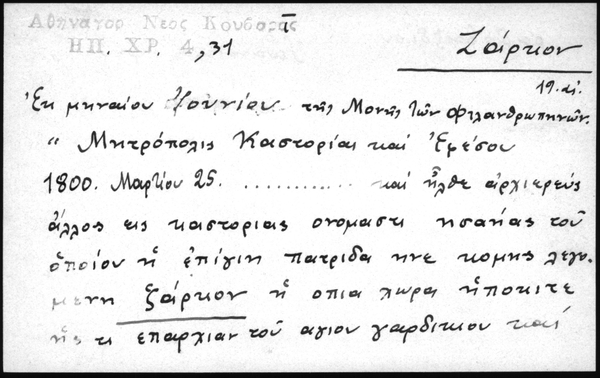 Αθηναγορ Νεος Κουβαρᾶς
ΗΠ. ΧΡ. 4, 31 ῑ
Ζάρκον
19. αἰ.
Ἐκ μηναίου Ἰουνίου τῆς Μονῆς τῶν Φιλανθρωπηνῶν.
" Μητρόπολις Καστορίας καὶ Ἐμέσου
1800. Μαρτίου 25. ............ καὶ ἦλθε ἀρχιερεὺς
ἄλλος εις καστοριας ονομαστι ησαήας τοῦ
ὁποίου ἡ ἐπίγιη πατριδα ηνε κομης λεγο
μενη ζάρκον ἡ οπια χωρα ἠποκιτε
ῆς τι επαρχιαν τοῦ αγιου γαρδικιου καὶ